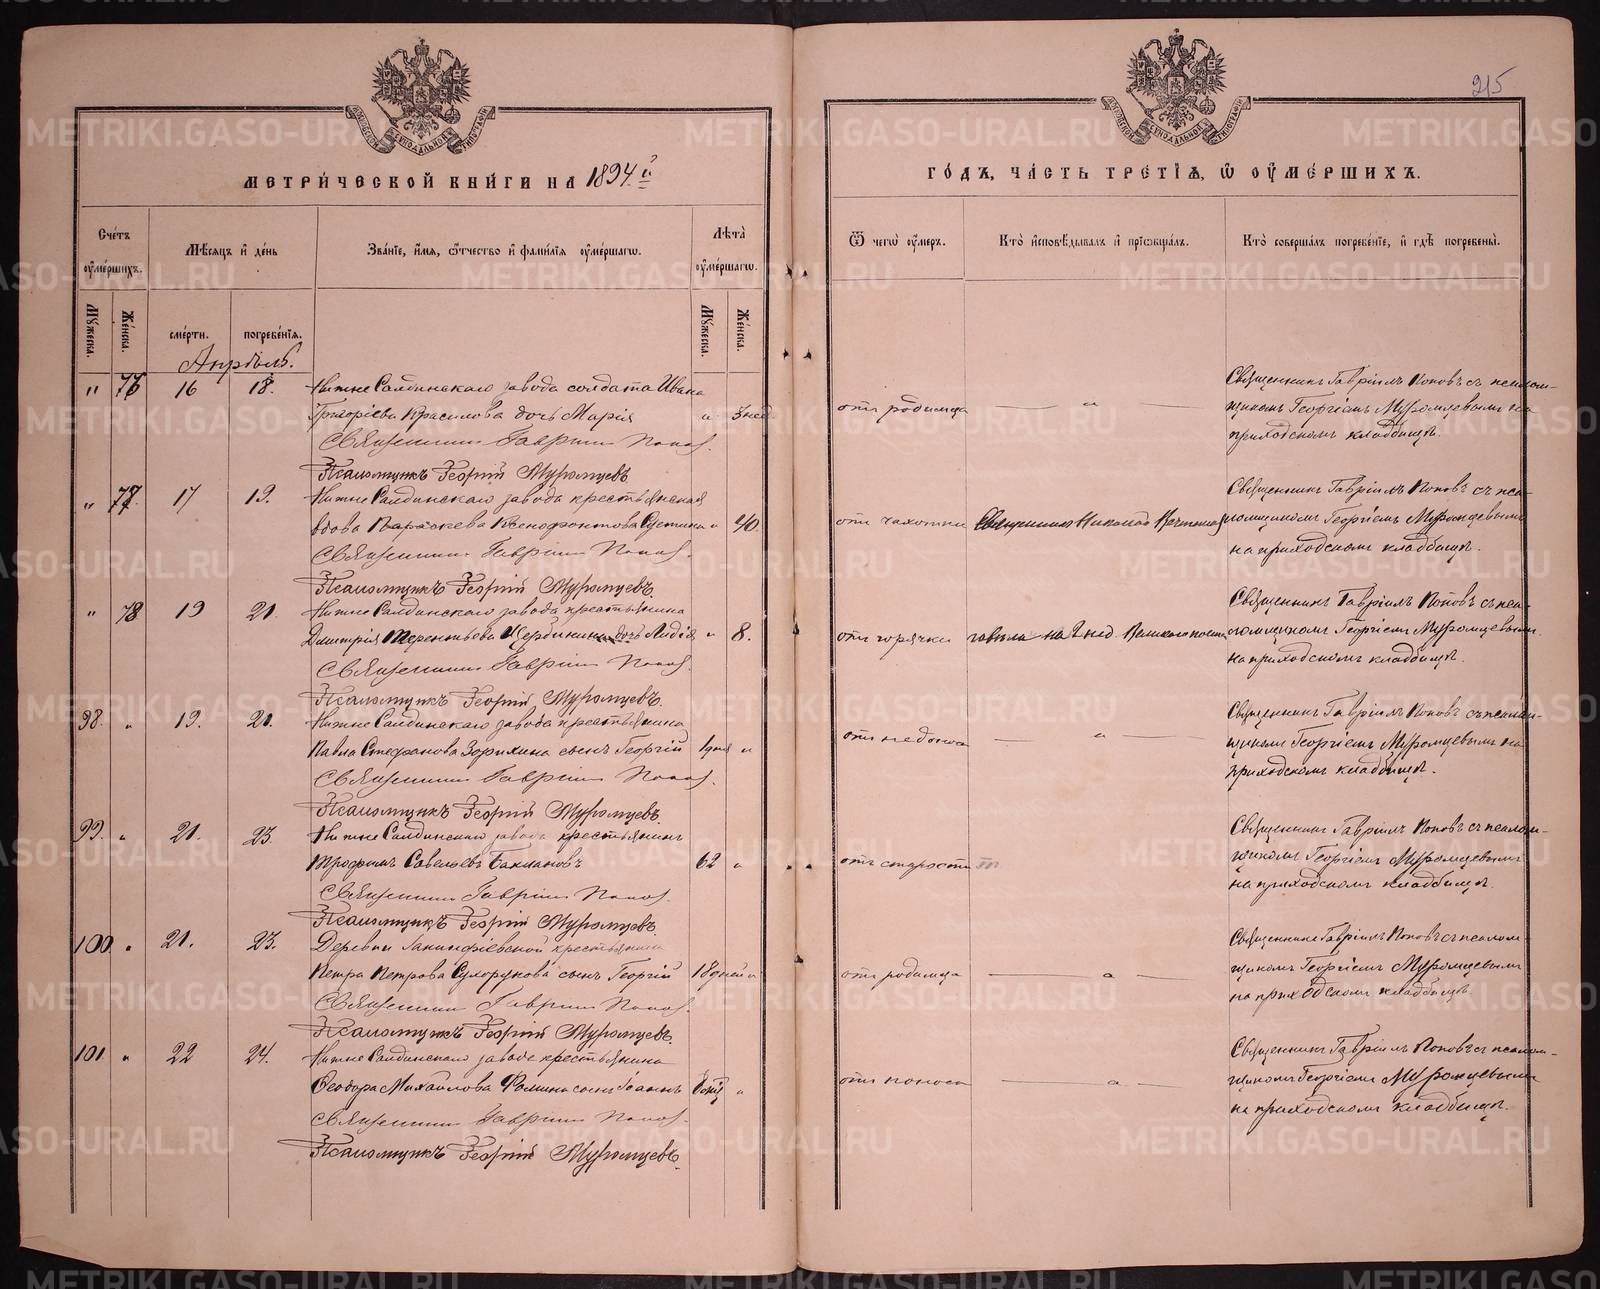 215
МЕТРИ́ЧЕСКОЙ КНИ́ГИ НА 1894 й
ГО́ДЪ, ЧА́СТЬ ТРЕ́ТІѦ, Ѿ ОУ҆МЕ́РШИХЪ.
Сче́тъ оу҆ме́ршихъ.
Мѣ́сяцъ и҆ де́нь
Зва́нїе, и҆́мѧ, ѻ҆́тчество и҆ фами́лїѧ оу҆ме́ршагѡ.
Лѣ́та оу҆ме́ршагѡ.
Ѿ чегѡ̀ оу҆́меръ.
Кто̀ и҆сповѣ́дывалъ и҆ прїѡбща́лъ.
Кто̀ соверша́лъ погребе́нїе, и҆ гдѣ̀ погребены̀.
Мꙋ́жеска.
Же́нска.
сме́рти.
погребе́нїѧ.
Мꙋ́жеска.
Же́нска.
Апрѣль.
" 76 16 18. Нижне Салдинскаго завода солдата Ивана
Григоріева Красилова дочь Марія " 3 нед.
Священникъ Гавріилъ Поповъ.
Псаломщикъ Георгій Муромцевъ
отъ родимца — " —
Священникъ Гавріилъ Поповъ съ псалом-
щикомъ Георгіемъ Муромцевымъ на
приходскомъ кладбищѣ.
" 77. 17 19. Нижне Салдинскаго завода крестьянская
вдова Параскева Ксенофонтова " 40.
Священникъ Гавріилъ Поповъ.
Псаломщикъ Георгій Муромцевъ.
отъ чахотки Священникъ Николай
Священникъ Гавріилъ Поповъ съ пса-
ломщикомъ Георгіемъ Муромцевымъ
на приходскомъ кладбищѣ.
" 78 19 21. Нижне Салдинскаго завода крестьянина
Димитрія Терентьева дочь Лидія " 8.
Священникъ Гавріилъ Поповъ.
Псаломщикъ Георгій Муромцевъ.
отъ горячки говѣла на 2 нед. Великаго поста
Священникъ Гавріилъ Поповъ съ пса-
ломщикомъ Георгіемъ Муромцевымъ
на приходскомъ кладбищѣ.
98. " 19. 21. Нижне Салдинскаго завода крестьянина
Павла Стефанова Зорихина сынъ Георгій 1 дня "
Священникъ Гавріилъ Поповъ.
Псаломщикъ Георгій Муромцевъ.
отъ недоноса — " —
Священникъ Гавріилъ Поповъ съ псалом-
щикомъ Георгіемъ Муромцевымъ на
приходскомъ кладбищѣ.
99. " 21. 23. Нижне Салдинскаго завода крестьянинъ
Трофимъ Савельевъ Баклановъ 62 "
Священникъ Гавріилъ Поповъ.
Псаломщикъ Георгій Муромцевъ.
отъ старости
Священникъ Гавріилъ Поповъ съ псалом-
щикомъ Георгіемъ Муромцевымъ
на приходскомъ кладбищѣ.
100. " 21. 23. Деревни крестьянина
Петра Петрова Сухорукова сынъ Георгій 18 дней "
Священникъ Гавріилъ Поповъ.
Псаломщикъ Георгій Муромцевъ.
отъ родимца — " —
Священникъ Гавріилъ Поповъ съ псалом-
щикомъ Георгіемъ Муромцевымъ
на приходскомъ кладбищѣ.
101. " 22 24. Нижне Салдинскаго завода крестьянина
Ѳеодора Михайлова Фомина сынъ Іоаннъ "
Священникъ Гавріилъ Поповъ.
Псаломщикъ Георгій Муромцевъ.
отъ поноса — " —
Священникъ Гавріилъ Поповъ съ псалом-
щикомъ Георгіемъ Муромцевымъ
на приходскомъ кладбищѣ.
METRIKI.GASO-URAL.RU